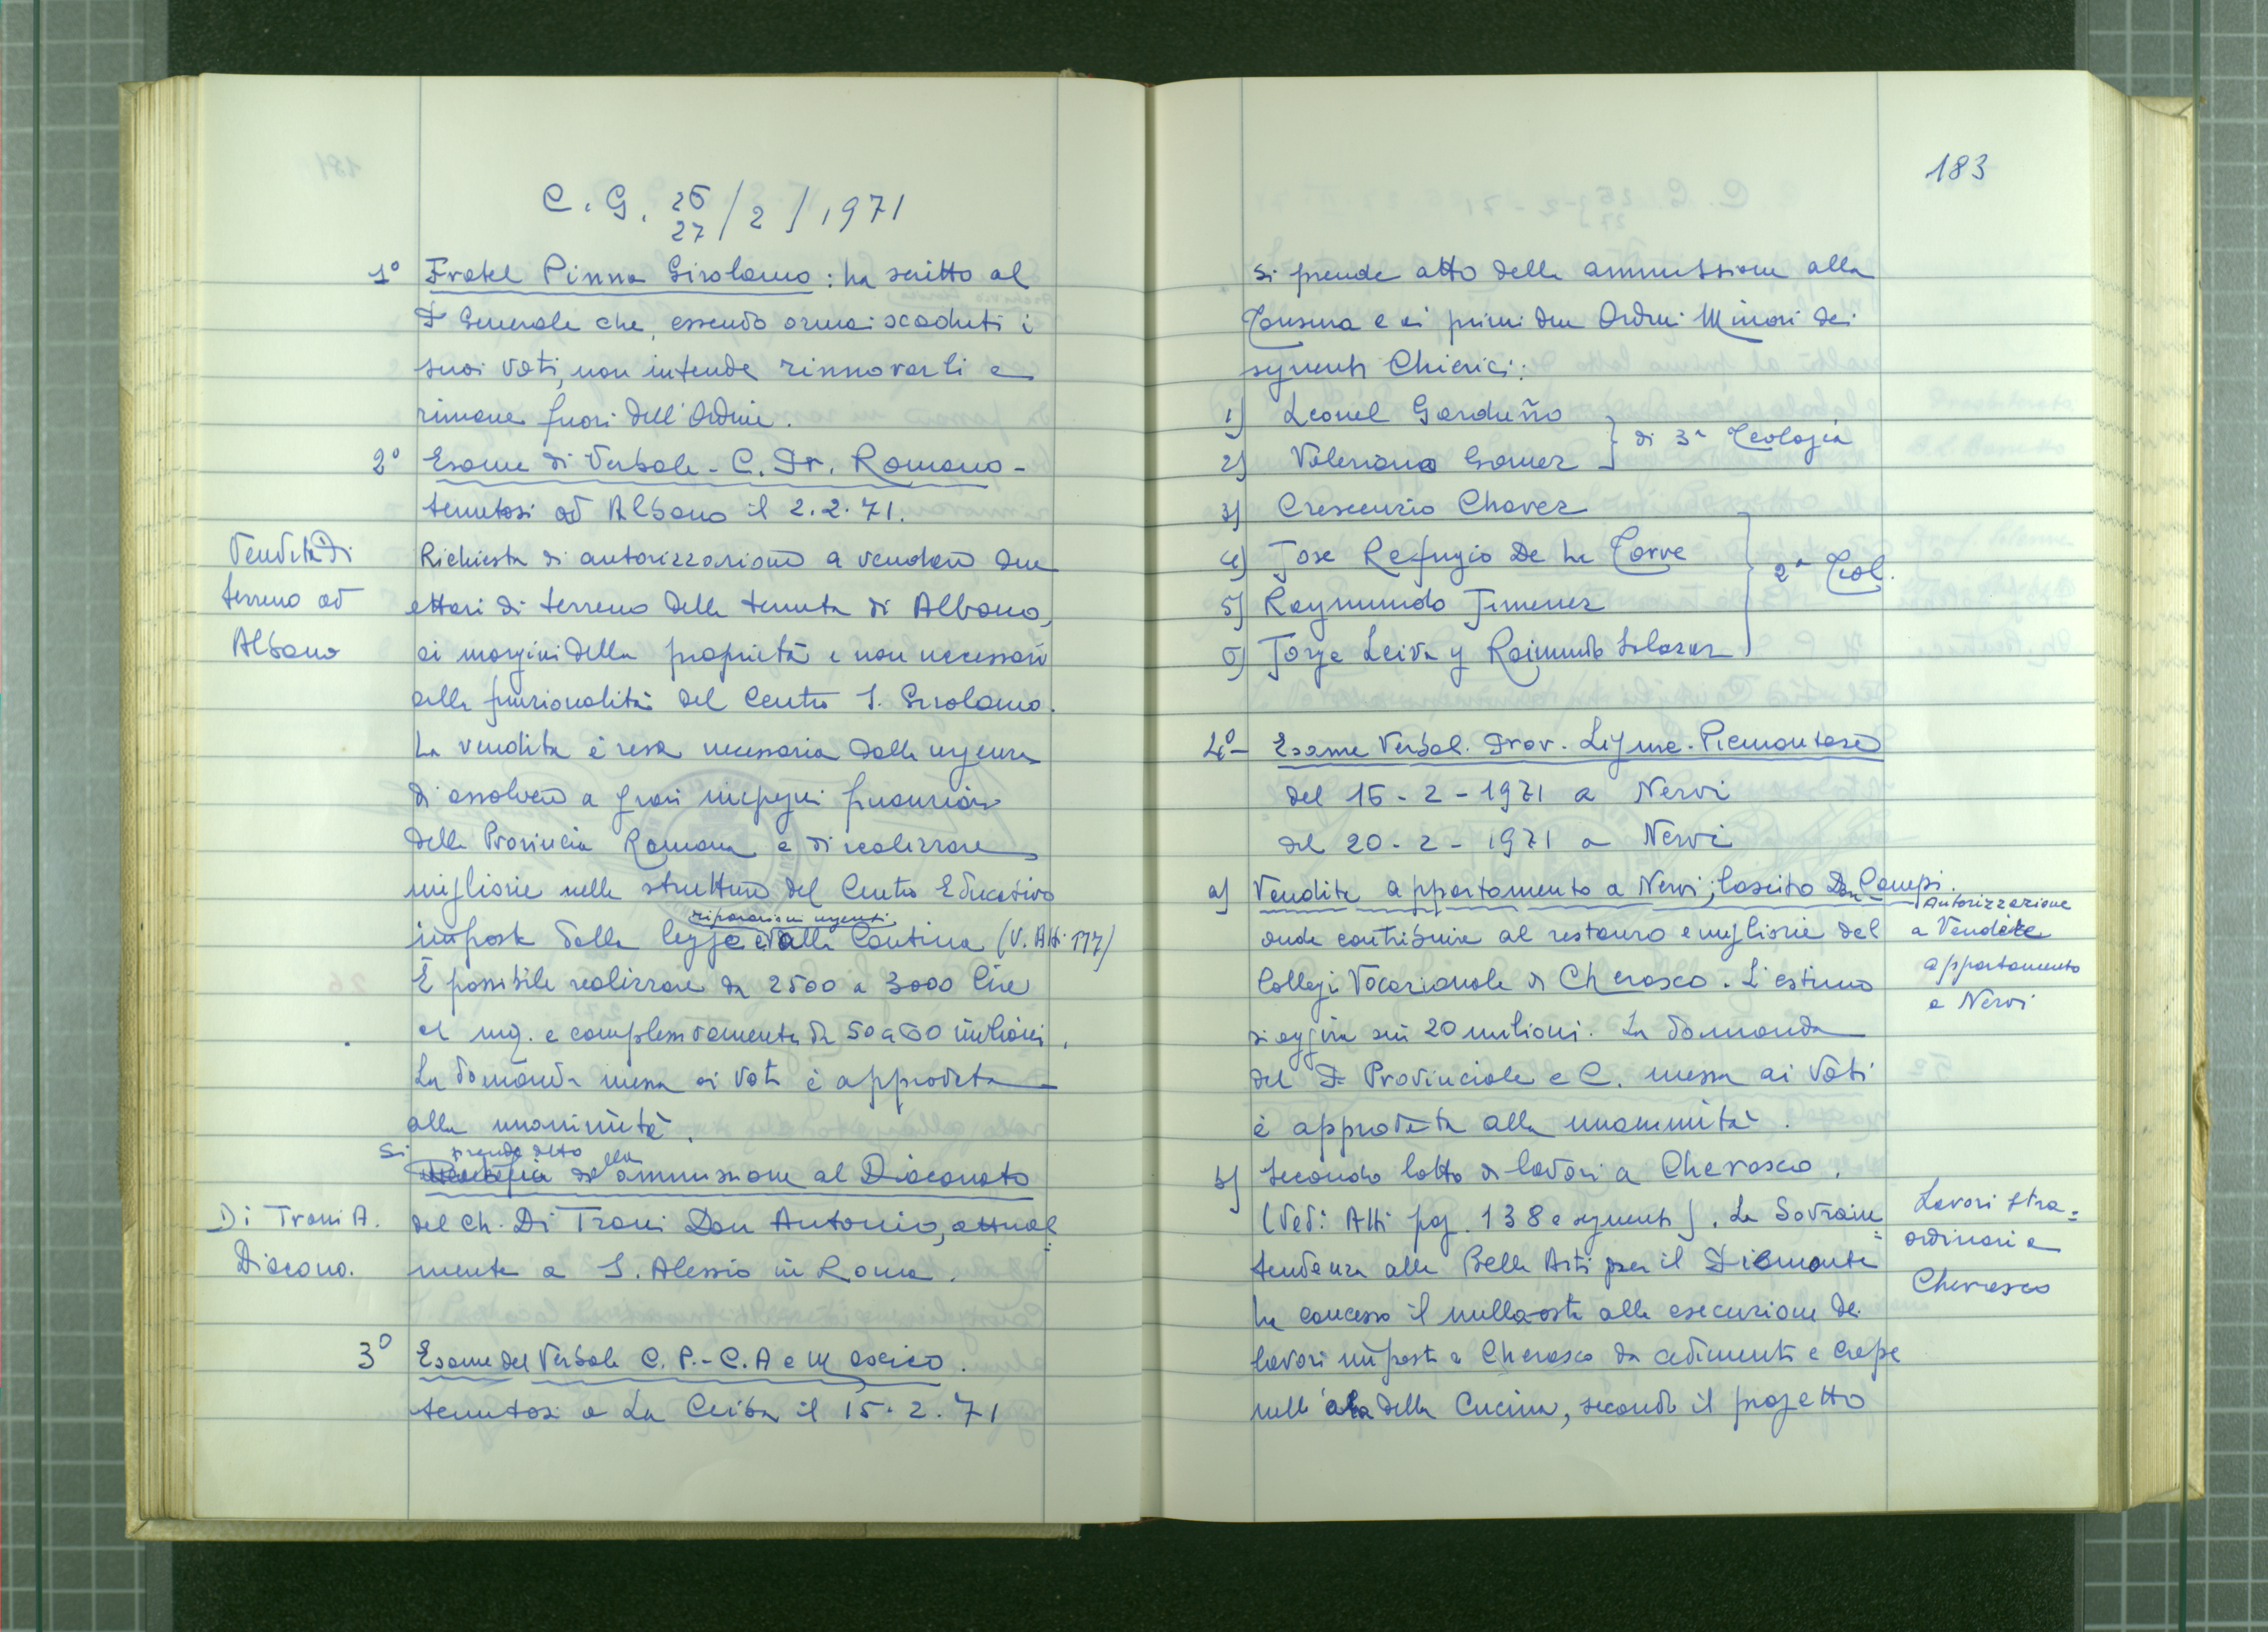 C. G. 26/27 / 2 / 1971
1° Fratel Pinna Girolamo: ha scritto al
P. Generale che, essendo ormai scaduti i
suoi voti, non intende rinnovarli e
rimane fuori dell'Ordine.
2° Esame di Verbale - C. Pr. Romano -
tenutosi ad Albano il 2.2.71.
Vendita di
terreno ad
Albano
Richiesta di autorizzazione a vendere due
ettari di terreno della tenuta di Albano,
ai margini della proprietà e non necessari
alla funzionalità del Centro S. Girolamo.
La vendita è resa necessaria dalla urgenza
di assolvere a gravi impegni finanziari
della Provincia Romana e di realizzare
migliorie nelle strutture del Centro Educativo
riparazioni urgenti
imposte dalla legge e alla Cantina (V. Atti 177)
È possibile realizzare da 2500 a 3000 lire
al mq. e complessivamente da 50 a 60 milioni.
La domanda messa ai voti è approvata
alla unanimità.
Si prende atto della ammissione al Diaconato
Di Trani A.
Diacono.
del Ch. Di Trani Don Antonio, attual=
mente a S. Alessio in Roma.
3° Esame del Verbale C. P. - C. A e Messico.
tenutosi a La Ceiba il 15.2.71
183
Si prende atto della ammissione alla
Tonsura e ai primi due Ordini Minori dei
seguenti Chierici:
1) Leonel Garduño
2) Valeriano Gomez } di 3ª Teologia
3) Crescenzio Chavez
4) Jose Refugio De La Torre
5) Raymundo Jimenez } 2ª Teol.
6) Jorge Leiva y Raimundo Salazar
4° - Esame Verbal. Prov. Ligure-Piemontese
del 16-2-1971 a Nervi
del 20-2-1971 a Nervi
a) Vendita appartamento a Nervi; lascito Don Campi.
Autorizzazione
a Vendere
appartamento
a Nervi
onde contribuire al restauro e migliorie del
Collegio Vocazionale di Cherasco. L'estimo
si aggira sui 20 milioni. La domanda
del P. Provinciale e C. messa ai voti
è approvata alla unanimità.
b) Secondo lotto di lavori a Cherasco.
Lavori stra=
ordinari a
Cherasco
(Vedi Atti pag. 138 e seguenti). La Sovrain=
tendenza alle Belle Arti per il Piemonte
ha concesso il nulla-osta alla esecuzione dei
lavori imposti a Cherasco da cedimenti e crepe
nell'ala della Cucina, secondo il progetto